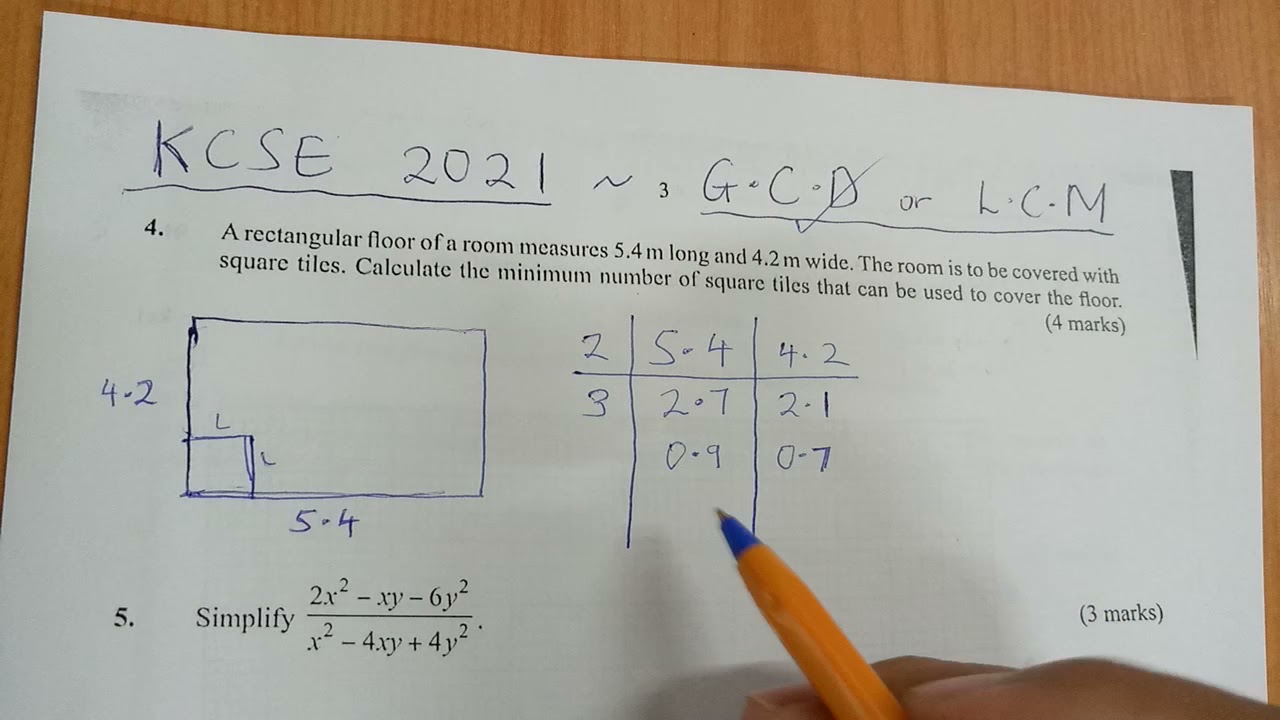 KCSE 2021 ~ 3 G.C.D or L.C.M
4. A rectangular floor of a room measures 5.4 m long and 4.2 m wide. The room is to be covered with
square tiles. Calculate the minimum number of square tiles that can be used to cover the floor.
(4 marks)
4.2
L
L
5.4
2 | 5.4 | 4.2
3 | 2.7 | 2.1
0.9 | 0.7
5. Simplify (2x² – xy – 6y²)/(x² – 4xy + 4y²).
(3 marks)